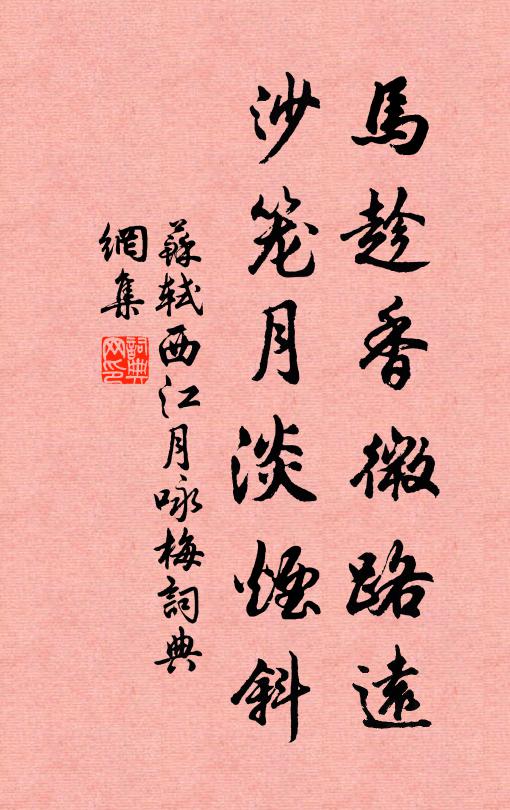 馬趁香微路遠
沙笼月淡煙斜
蘇軾西江月咏梅詞典
網集
詞典網印